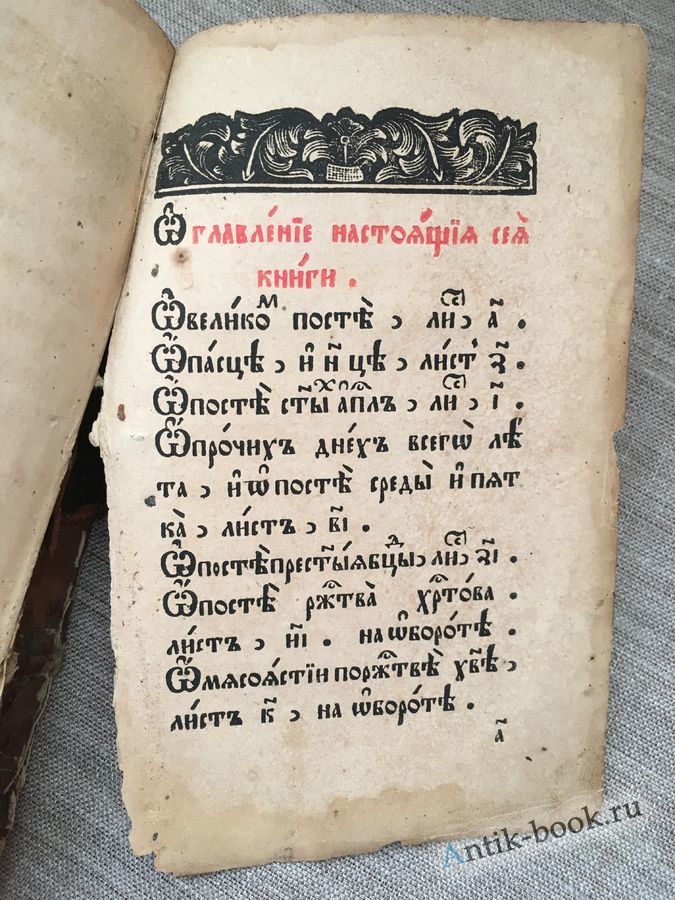 Ѡ҆главле́нїе настоѧ́щїѧ сеѧ̀
кни́ги .
Ѡ҆вели́коⷨ постѣ̀ , лиⷭ҇ , а҃ .
Ѡ҆па́сцѣ , и҆ н҃цѣ , ли́ст , з҃ .
Ѡ҆постѣ̀ ст҃ыⷯ а҆пⷭ҇лъ , лиⷭ҇ , і҃ .
Ѡ҆про́чихъ дне́хъ всегѡ̀ лѣ́
та , и҆ ѡ҆ постѣ̀ среды̀ и҆ пѧт
ка̀ , ли́стъ , в҃і .
Ѡ҆постѣ̀прест҃ы́ѧвцⷣы , лиⷭ҇ , з҃і .
Ѡ҆постѣ̀ ржⷭ҇тва̀ хрⷭ҇то́ва .
ли́стъ , и҃і . на ѡ҆боро́тѣ .
Ѡ҆мѧсоѧ́стїи поржⷭ҇твѣ̀ хв҃ѣ ,
ли́стъ к҃ , на ѡ҆боро́тѣ .
а҃
Antik-book.ru